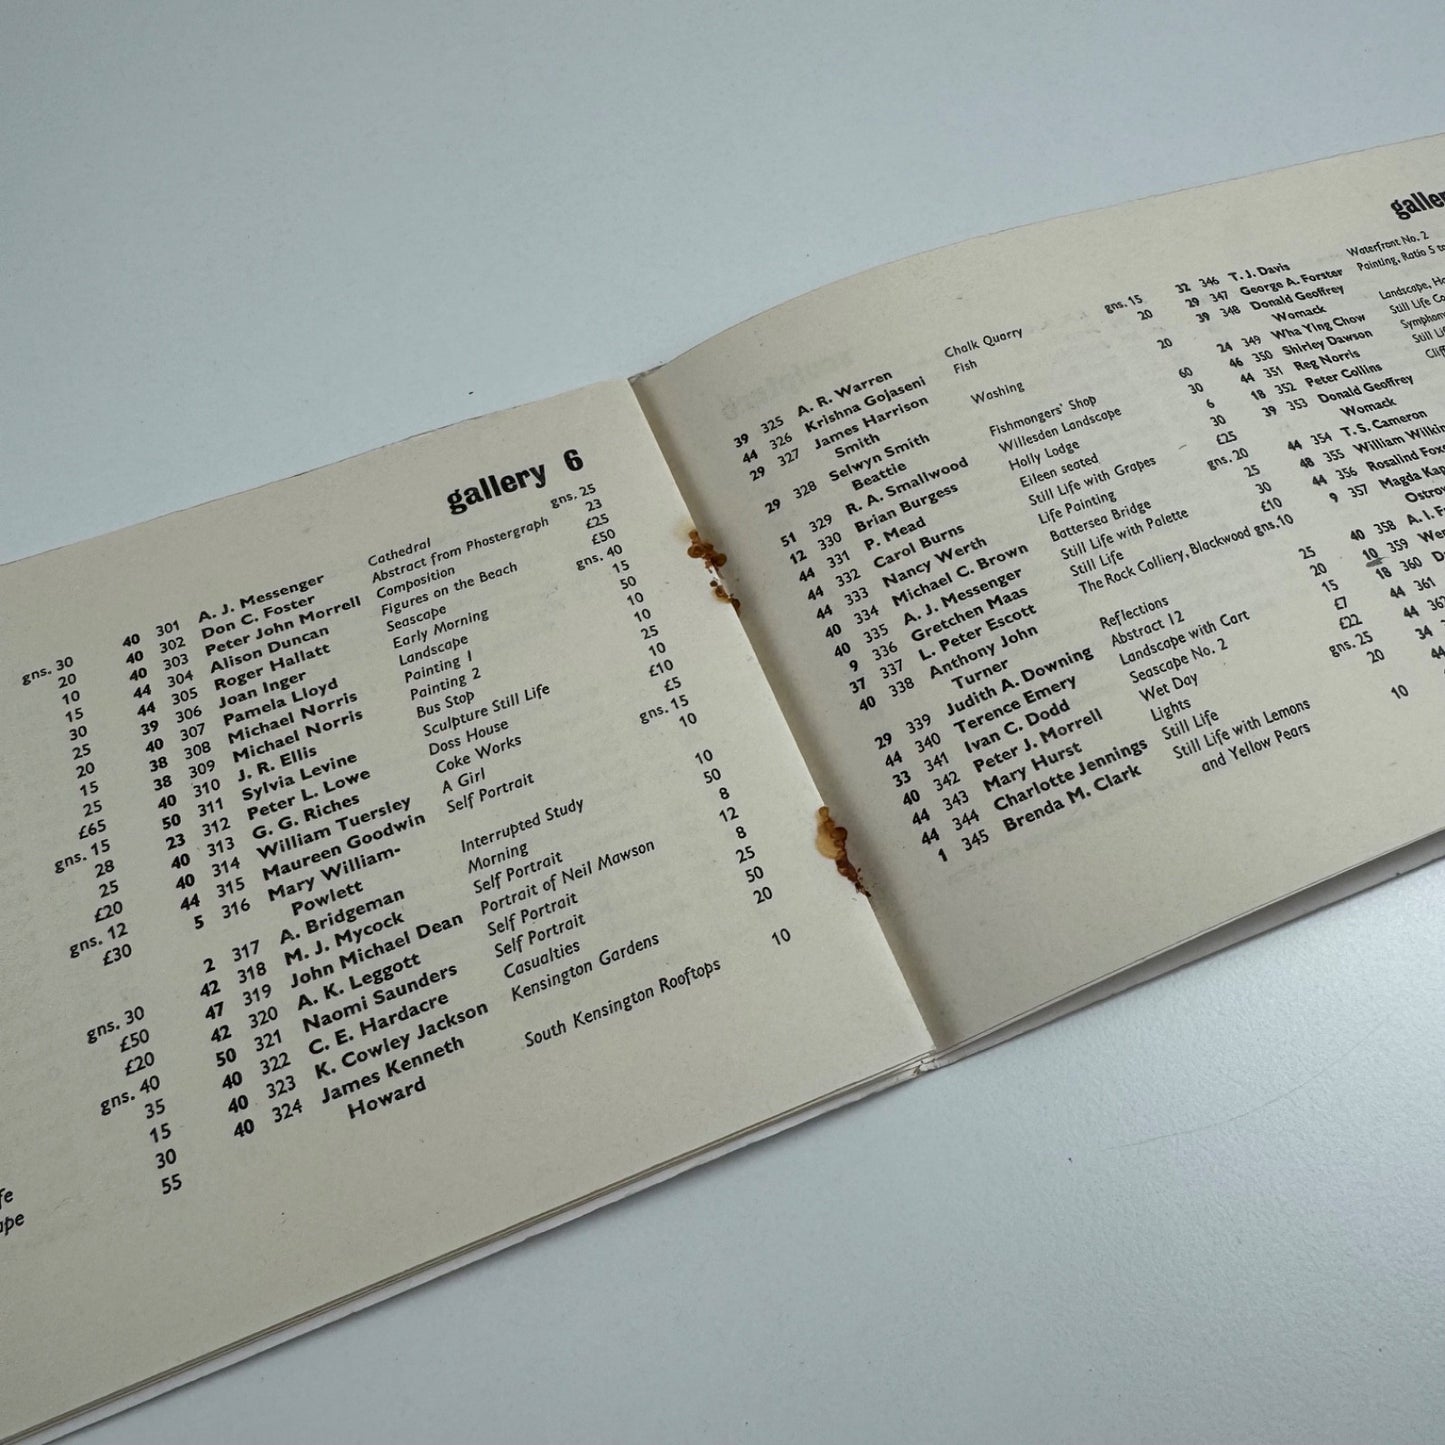 gns. 30
20
10
15
30
25
20
15
25
£65
gns. 15
28
25
£20
gns. 12
£30
gns. 30
£50
£20
gns. 40
35
15
30
55
gallery 6
40 301 A. J. Messenger Cathedral gns. 25
40 302 Don C. Foster Abstract from Phostergraph 23
40 303 Peter John Morrell Composition £25
44 304 Alison Duncan Figures on the Beach £50
44 305 Roger Hallatt Seascape gns. 40
39 306 Joan Inger Early Morning 15
40 307 Pamela Lloyd Landscape 50
38 308 Michael Norris Painting 1 10
38 309 Michael Norris Painting 2 10
40 310 J. R. Ellis Bus Stop 25
50 311 Sylvia Levine Sculpture Still Life 10
23 312 Peter L. Lowe Doss House £10
40 313 G. G. Riches Coke Works £5
40 314 William Tuersley A Girl gns. 15
44 315 Maureen Goodwin Self Portrait 10
5 316 Mary William-
Powlett Interrupted Study 10
2 317 A. Bridgeman Morning 50
42 318 M. J. Mycock Self Portrait 8
47 319 John Michael Dean Portrait of Neil Mawson 12
42 320 A. K. Leggott Self Portrait 8
50 321 Naomi Saunders Self Portrait 25
40 322 C. E. Hardacre Casualties 50
40 323 K. Cowley Jackson Kensington Gardens 20
40 324 James Kenneth
Howard South Kensington Rooftops 10
39 325 A. R. Warren Chalk Quarry gns. 15
44 326 Krishna Gojaseni Fish 20
29 327 James Harrison
Smith Washing 20
29 328 Selwyn Smith
Beattie Fishmongers' Shop 60
51 329 R. A. Smallwood Willesden Landscape 30
12 330 Brian Burgess Holly Lodge 6
44 331 P. Mead Eileen seated 30
44 332 Carol Burns Still Life with Grapes £25
44 333 Nancy Werth Life Painting gns. 20
40 334 Michael C. Brown Battersea Bridge 25
40 335 A. J. Messenger Still Life with Palette 30
9 336 Gretchen Maas Still Life £10
37 337 L. Peter Escott The Rock Colliery, Blackwood gns.10
40 338 Anthony John
Turner Reflections 25
29 339 Judith A. Downing Abstract 12 20
44 340 Terence Emery Landscape with Cart 15
33 341 Ivan C. Dodd Seascape No. 2 £7
40 342 Peter J. Morrell Wet Day £22
44 343 Mary Hurst Lights gns. 25
44 344 Charlotte Jennings Still Life 20
1 345 Brenda M. Clark Still Life with Lemons
and Yellow Pears 10
32 346 T. J. Davis Waterfront No. 2
29 347 George A. Forster Painting, Ratio 5 to
39 348 Donald Geoffrey
Womack Landscape,
24 349 Wha Ying Chow Still Life
46 350 Shirley Dawson
44 351 Reg Norris Still
18 352 Peter Collins
39 353 Donald Geoffrey
Womack
44 354 T. S. Cameron
48 355 William
44 356 Rosalind
9 357 Magda
40 358 A. I.
10 359
18 360
44 361
44
34
44